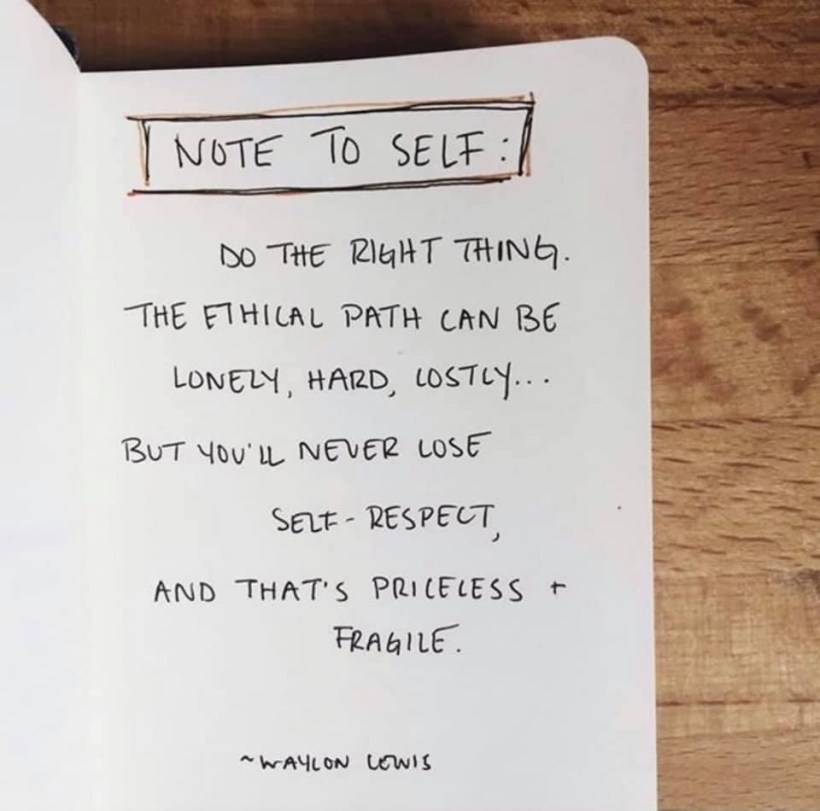 NOTE TO SELF:
DO THE RIGHT THING.
THE ETHICAL PATH CAN BE
LONELY, HARD, COSTLY...
BUT YOU'LL NEVER LOSE
SELF-RESPECT,
AND THAT'S PRICELESS +
FRAGILE.
~WAYLON LEWIS